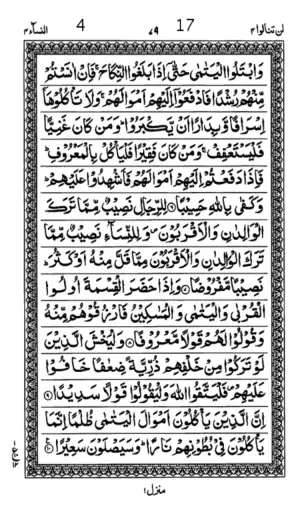 لن تنالوا ۴ 17 ۷۹ 4 النسآء ۴
وَابْتَلُوا الْيَتٰمٰى حَتّٰٓى اِذَا بَلَغُوا النِّكَاحَ ۚ فَاِنْ اٰنَسْتُمْ
مِّنْهُمْ رُشْدًا فَادْفَعُوْٓا اِلَيْهِمْ اَمْوَالَهُمْ ۚ وَلَا تَاْكُلُوْهَآ
اِسْرَافًا وَّبِدَارًا اَنْ يَّكْبَرُوْا ؕ وَمَنْ كَانَ غَنِيًّا
فَلْيَسْتَعْفِفْ ۚ وَمَنْ كَانَ فَقِيْرًا فَلْيَاْكُلْ بِالْمَعْرُوْفِ ؕ
فَاِذَا دَفَعْتُمْ اِلَيْهِمْ اَمْوَالَهُمْ فَاَشْهِدُوْا عَلَيْهِمْ ؕ
وَكَفٰى بِاللّٰهِ حَسِيْبًا ۝ لِلرِّجَالِ نَصِيْبٌ مِّمَّا تَرَكَ
الْوَالِدٰنِ وَالْاَقْرَبُوْنَ ۪ وَلِلنِّسَآءِ نَصِيْبٌ مِّمَّا
تَرَكَ الْوَالِدٰنِ وَالْاَقْرَبُوْنَ مِمَّا قَلَّ مِنْهُ اَوْ كَثُرَ ؕ
نَصِيْبًا مَّفْرُوْضًا ۝ وَاِذَا حَضَرَ الْقِسْمَةَ اُولُوا
الْقُرْبٰى وَالْيَتٰمٰى وَالْمَسٰكِيْنُ فَارْزُقُوْهُمْ مِّنْهُ
وَقُوْلُوْا لَهُمْ قَوْلًا مَّعْرُوْفًا ۝ وَلْيَخْشَ الَّذِيْنَ
لَوْ تَرَكُوْا مِنْ خَلْفِهِمْ ذُرِّيَّةً ضِعٰفًا خَافُوْا
عَلَيْهِمْ ۪ فَلْيَتَّقُوا اللّٰهَ وَلْيَقُوْلُوْا قَوْلًا سَدِيْدًا ۝
اِنَّ الَّذِيْنَ يَاْكُلُوْنَ اَمْوَالَ الْيَتٰمٰى ظُلْمًا اِنَّمَا
يَاْكُلُوْنَ فِيْ بُطُوْنِهِمْ نَارًا ؕ وَسَيَصْلَوْنَ سَعِيْرًا ۝
منزل ۱